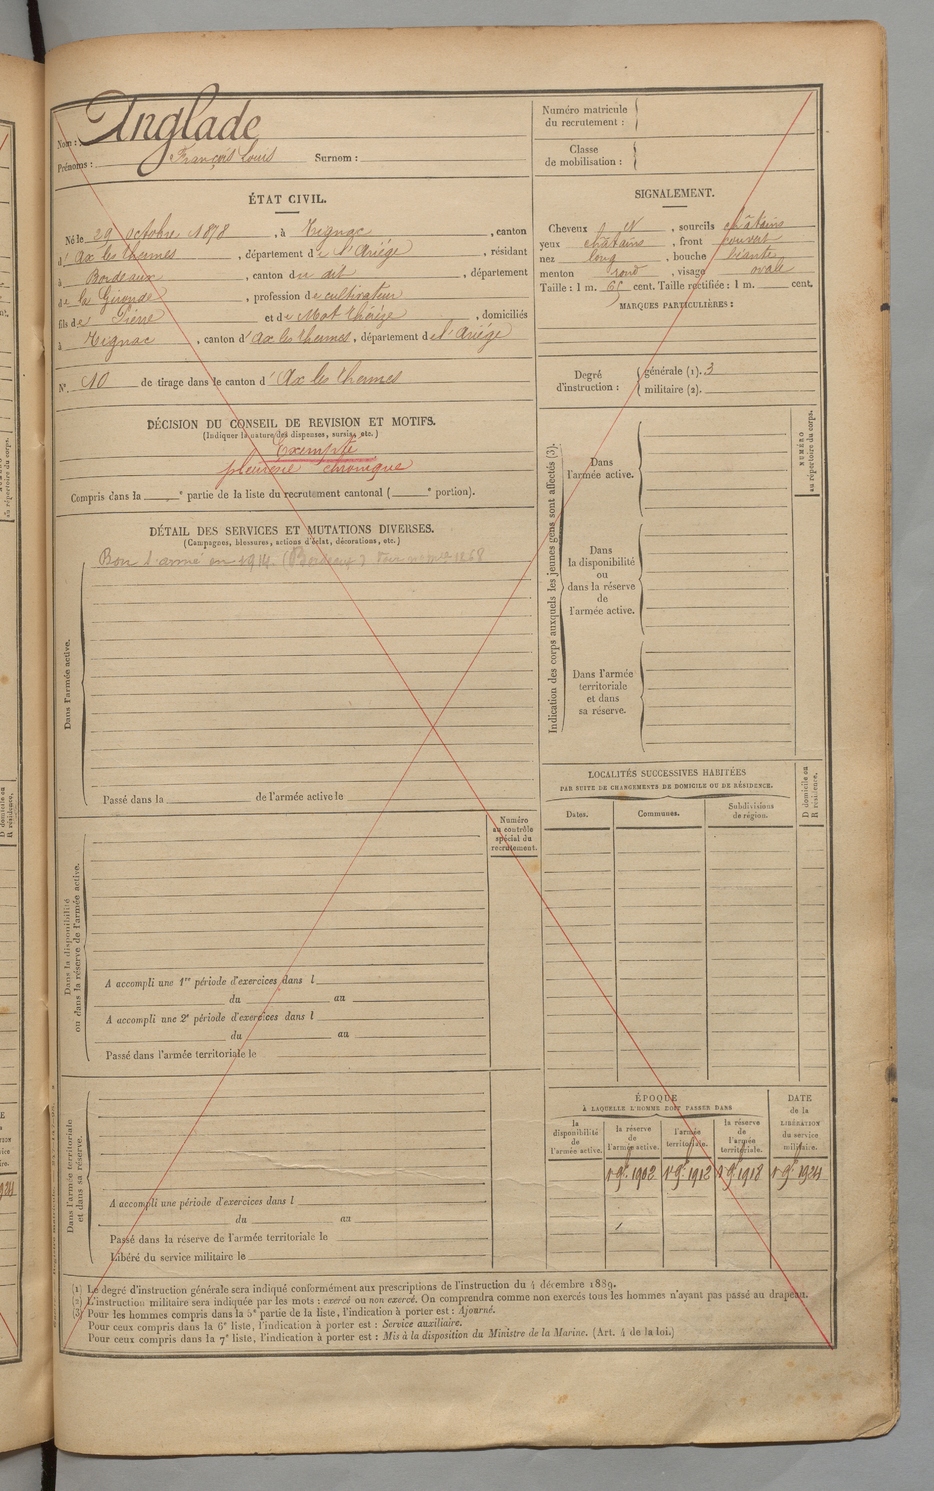 Nom : Anglade
Prénoms : François Louis Surnom :
ÉTAT CIVIL.
Né le 29 octobre 1878, à Tignac, canton
d'Ax les thermes, département de l'Ariége, résidant
à Bordeaux, canton du dit, département
de la Gironde, profession de cultivateur
fils de Pierre et de Mot Thérèze, domiciliés
à Tignac, canton d'Ax les thermes, département de l'Ariége
N° 10 de tirage dans le canton d'Ax les thermes
DÉCISION DU CONSEIL DE REVISION ET MOTIFS.
(Indiquer la nature des dispenses, sursis, etc.)
Exempté
pleurésie chronique
Compris dans la e partie de la liste du recrutement cantonal ( e portion).
DÉTAIL DES SERVICES ET MUTATIONS DIVERSES.
(Campagnes, blessures, actions d'éclat, décorations, etc.)
Bon s. armé en 1914. (Bordeaux)
Dans l'armée active.
Passé dans la de l'armée active le
Numéro
au contrôle
spécial du
recrutement.
Dans la disponibilité
ou dans la réserve de l'armée active.
A accompli une 1re période d'exercices dans l
du au
A accompli une 2e période d'exercices dans l
du au
Passé dans l'armée territoriale le
Dans l'armée territoriale
et dans sa réserve.
A accompli une période d'exercices dans l
du au
Passé dans la réserve de l'armée territoriale le
Libéré du service militaire le
Numéro matricule
du recrutement :
Classe
de mobilisation :
SIGNALEMENT.
Cheveux et, sourcils châtains
yeux châtains, front couvert
nez long, bouche béante
menton rond, visage ovale
Taille : 1 m. 65 cent. Taille rectifiée : 1 m. cent.
MARQUES PARTICULIÈRES :
Degré
d'instruction :
générale (1). 3
militaire (2).
Indication des corps auxquels les jeunes gens sont affectés (3).
NUMÉRO
au répertoire du corps.
Dans
l'armée active.
Dans
la disponibilité
ou
dans la réserve
de
l'armée active.
Dans l'armée
territoriale
et dans
sa réserve.
LOCALITÉS SUCCESSIVES HABITÉES
PAR SUITE DE CHANGEMENTS DE DOMICILE OU DE RÉSIDENCE.
D domicile ou
R résidence.
Dates. Communes. Subdivisions
de région.
ÉPOQUE
À LAQUELLE L'HOMME DOIT PASSER DANS
la
disponibilité
de
l'armée active.
la réserve
de
l'armée active.
l'armée
territoriale.
la réserve
de
l'armée
territoriale.
DATE
de la
LIBÉRATION
du service
militaire.
1 9bre 1902 1 9bre 1912 1 9bre 1918 1 9bre 1924
(1) Le degré d'instruction générale sera indiqué conformément aux prescriptions de l'instruction du 4 décembre 1889.
(2) L'instruction militaire sera indiquée par les mots : exercé ou non exercé. On comprendra comme non exercés tous les hommes n'ayant pas passé au drapeau.
(3) Pour les hommes compris dans la 5e partie de la liste, l'indication à porter est : Ajourné.
Pour ceux compris dans la 6e liste, l'indication à porter est : Service auxiliaire.
Pour ceux compris dans la 7e liste, l'indication à porter est : Mis à la disposition du Ministre de la Marine. (Art. 4 de la loi.)